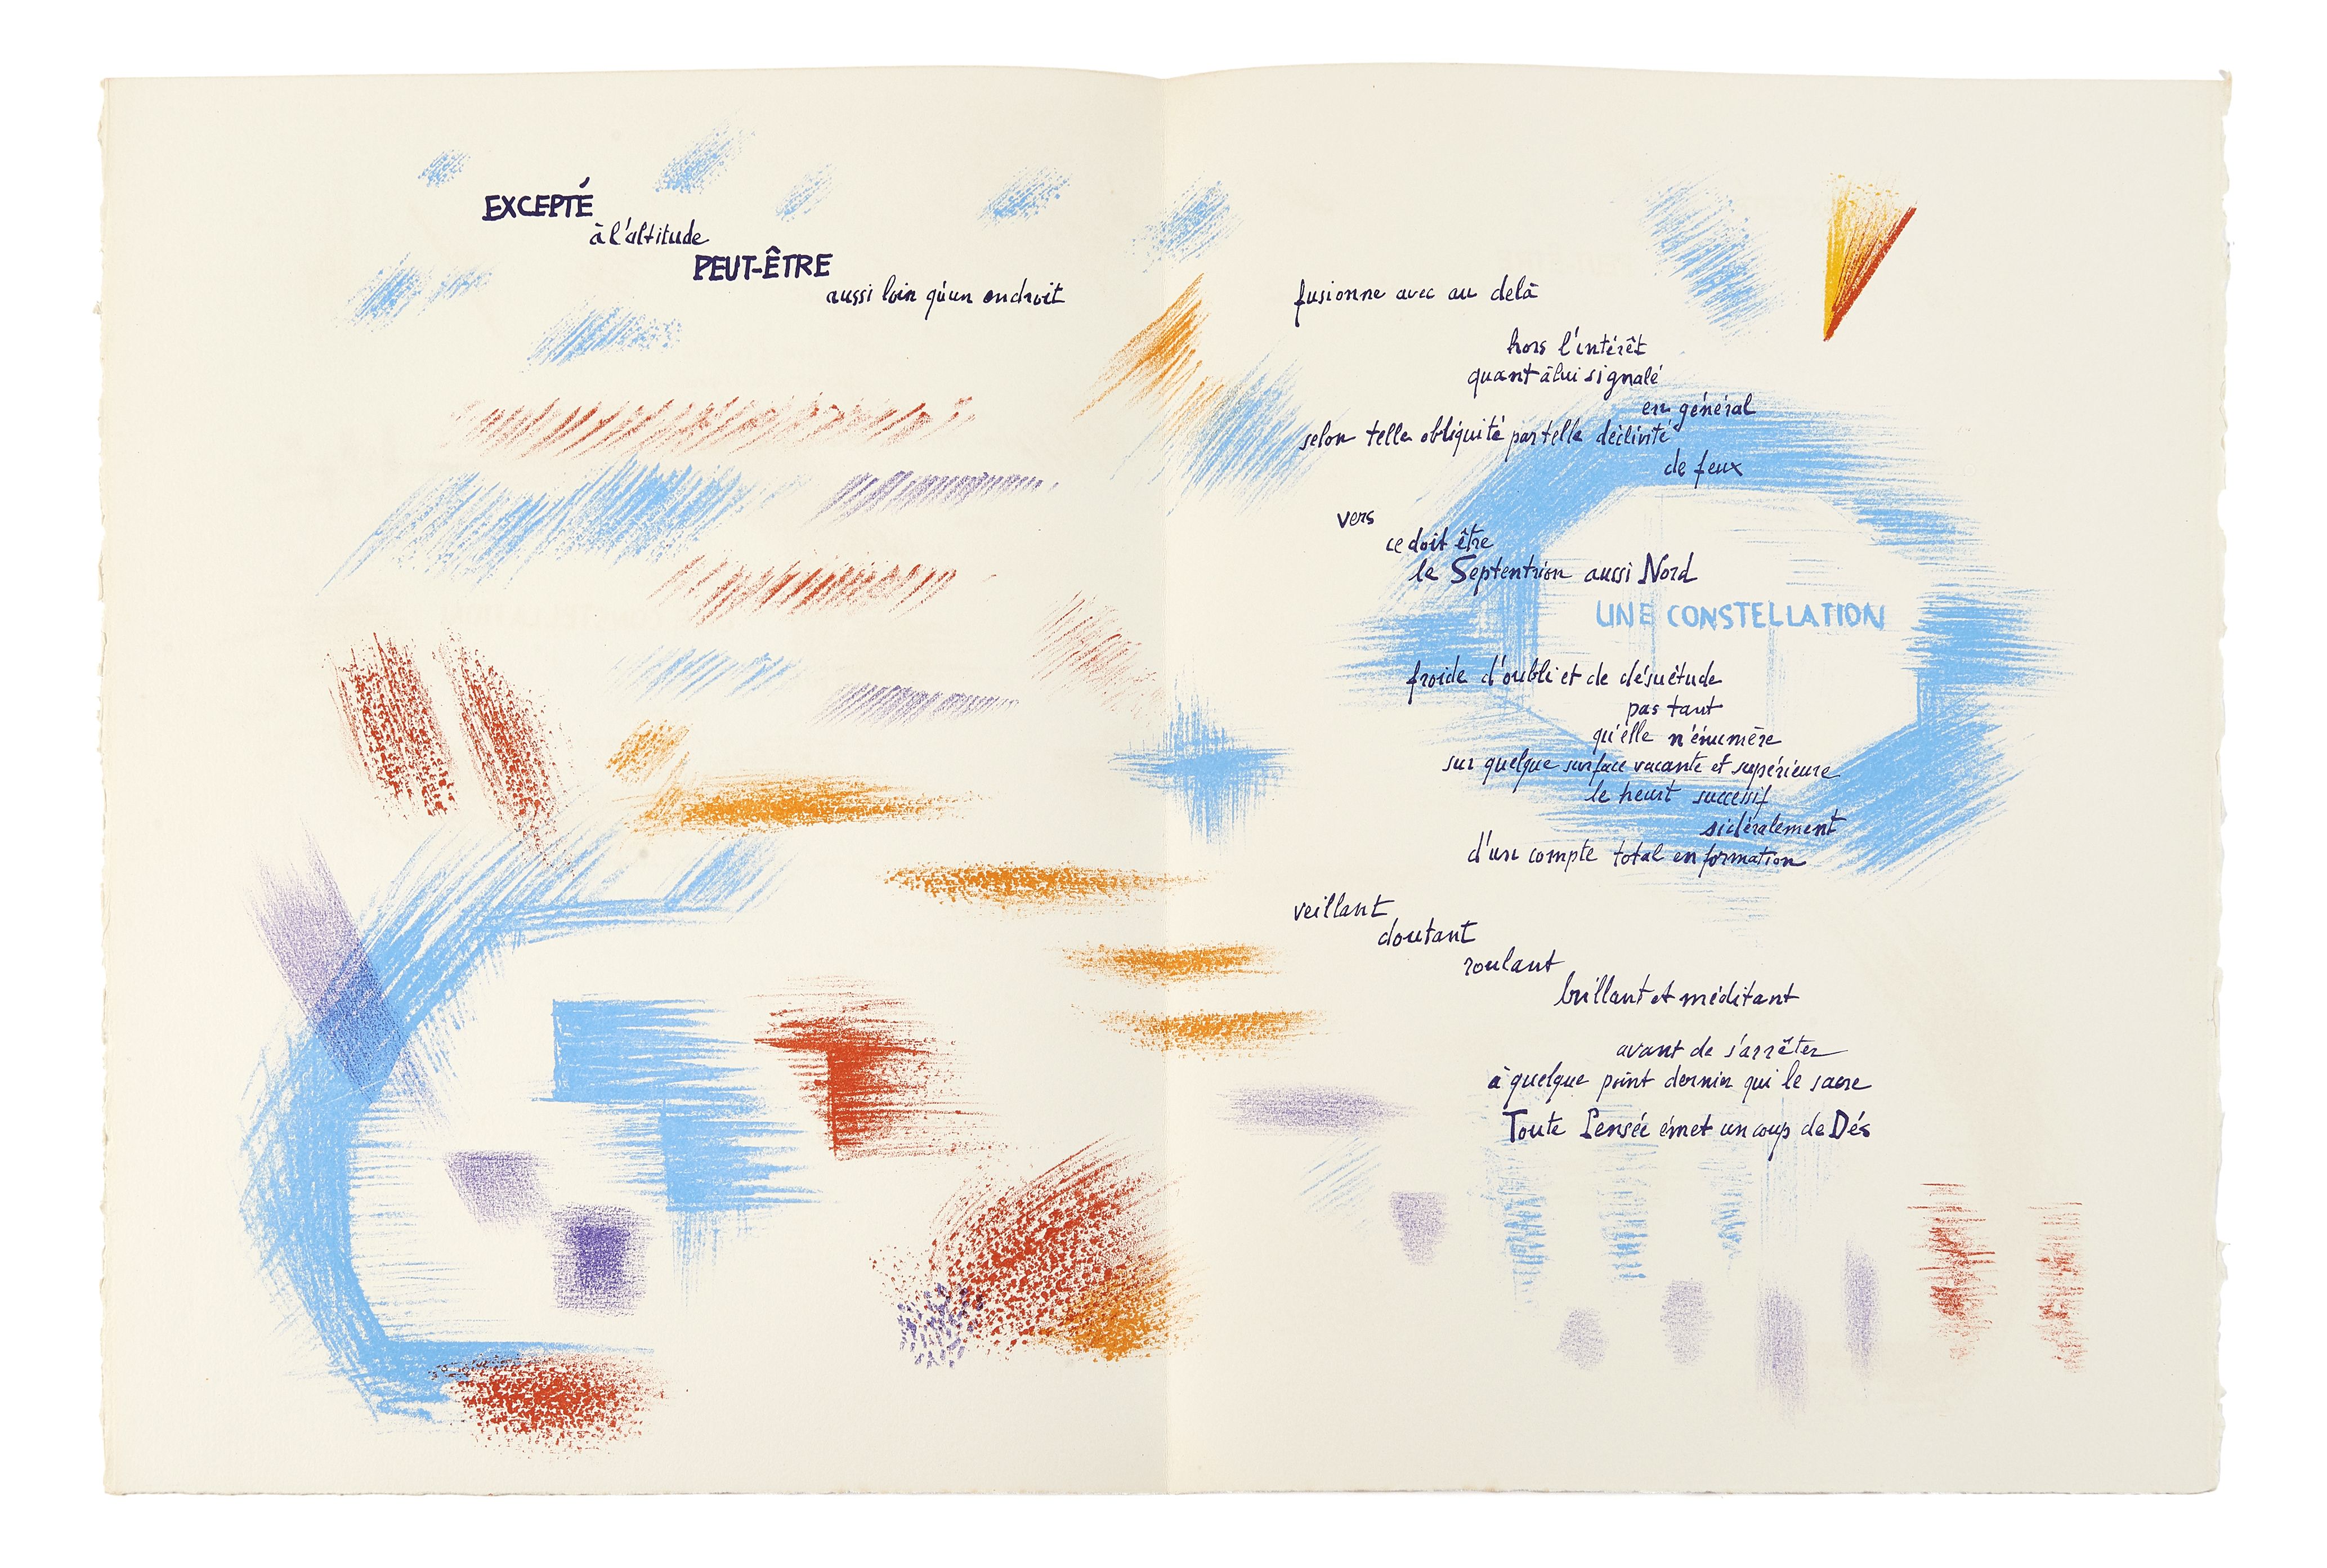 EXCEPTÉ
à l'altitude
PEUT-ÊTRE
aussi loin qu'un endroit
fusionne avec au delà
hors l'intérêt
quant à lui signalé
en général
selon telle obliquité par telle déclivité
de feux
vers
ce doit être
le Septentrion aussi Nord
UNE CONSTELLATION
froide d'oubli et de désuétude
pas tant
qu'elle n'énumère
sur quelque surface vacante et supérieure
le heurt successif
sidéralement
d'un compte total en formation
veillant
doutant
roulant
brillant et méditant
avant de s'arrêter
à quelque point dernier qui le sacre
Toute Pensée émet un coup de Dés